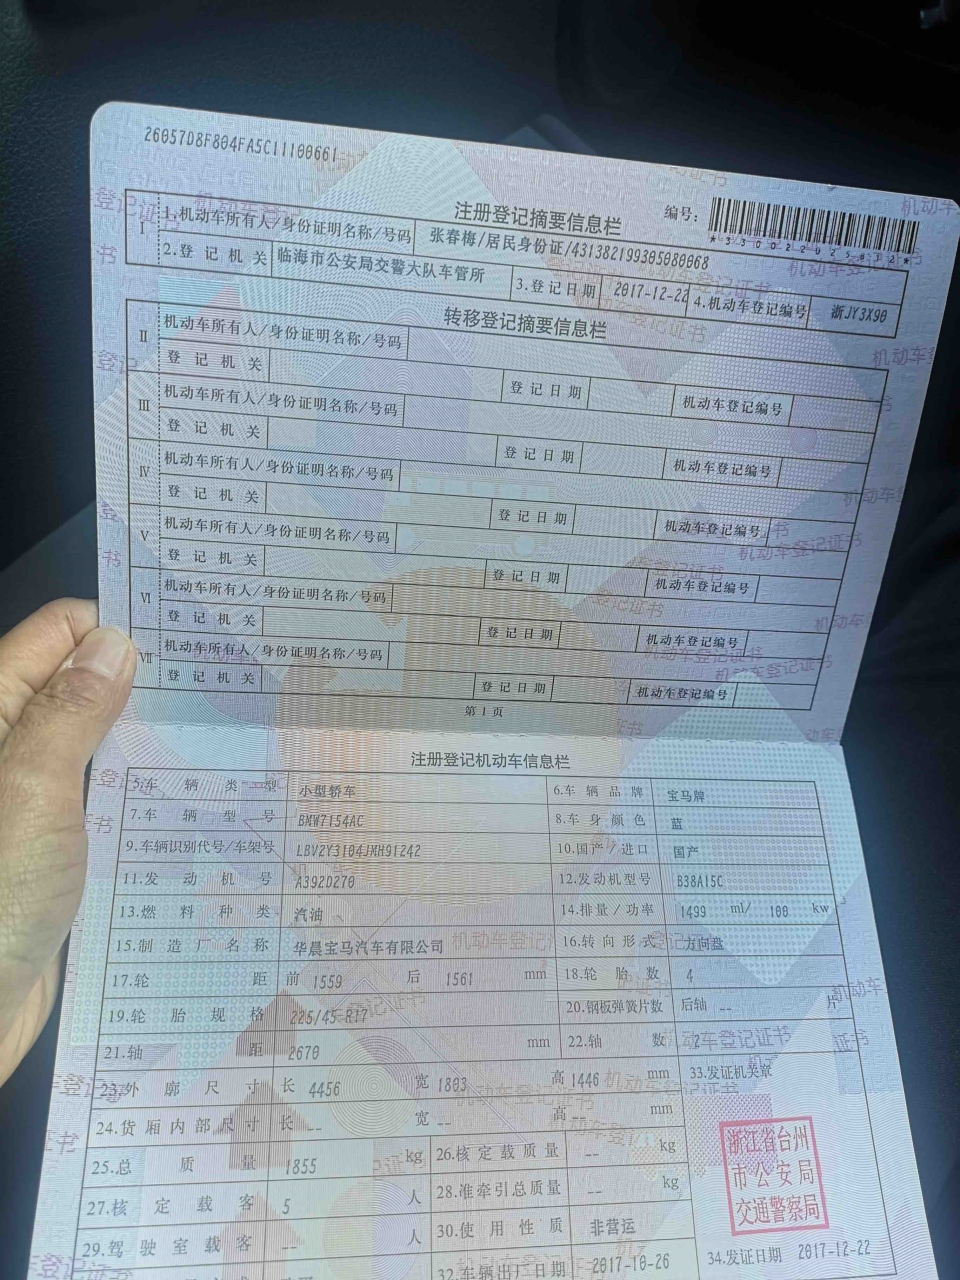 26057D8F804FA5C11100661
注册登记摘要信息栏 编号:
I 1.机动车所有人/身份证明名称/号码 张春梅/居民身份证/431382199305080068
2.登记机关 临海市公安局交警大队车管所 3.登记日期 2017-12-22 4.机动车登记编号 浙JY3X90
转移登记摘要信息栏
II 机动车所有人/身份证明名称/号码
登记机关 登记日期 机动车登记编号
III 机动车所有人/身份证明名称/号码
登记机关 登记日期 机动车登记编号
IV 机动车所有人/身份证明名称/号码
登记机关 登记日期 机动车登记编号
V 机动车所有人/身份证明名称/号码
登记机关 登记日期 机动车登记编号
VI 机动车所有人/身份证明名称/号码
登记机关 登记日期 机动车登记编号
VII 机动车所有人/身份证明名称/号码
登记机关 登记日期 机动车登记编号
第1页
注册登记机动车信息栏
5.车辆类型 小型轿车 6.车辆品牌 宝马牌
7.车辆型号 BMW7154AC 8.车身颜色 蓝
9.车辆识别代号/车架号 LBV2Y3104JMH91242 10.国产/进口 国产
11.发动机号 A392D270 12.发动机型号 B38A15C
13.燃料种类 汽油 14.排量/功率 1499 ml/ 100 kw
15.制造厂名称 华晨宝马汽车有限公司 16.转向形式 方向盘
17.轮距 前 1559 后 1561 mm 18.轮胎数 4
19.轮胎规格 225/45 R17 20.钢板弹簧片数 后轴 -- 片
21.轴距 2670 mm 22.轴数 2
23.外廓尺寸 长 4456 宽 1803 高 1446 mm 33.发证机关章
24.货厢内部尺寸 长 -- 宽 -- 高 -- mm
25.总质量 1855 kg 26.核定载质量 -- kg
27.核定载客 5 人 28.准牵引总质量 -- kg
浙江省台州
市公安局
交通警察局
29.驾驶室载客 -- 人 30.使用性质 非营运
32.车辆出厂日期 2017-10-26 34.发证日期 2017-12-22